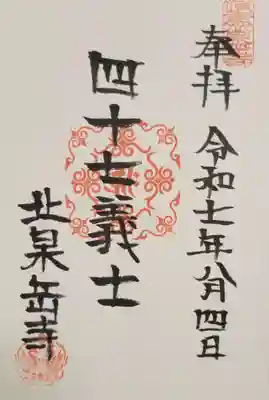 奉拝 令和七年八月四日
四十七義士
北泉岳寺